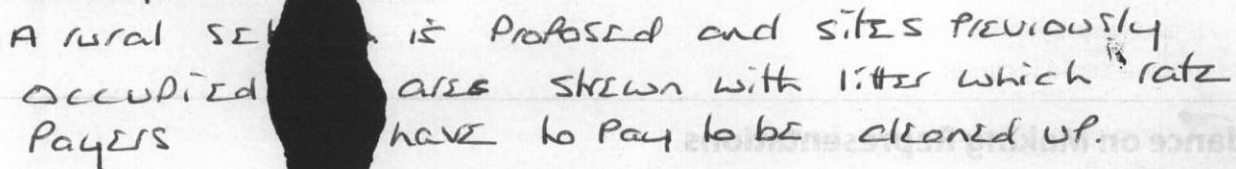 A rural is Proposed and sites Previously
occupied ares strewn with litter which rate
Payers have to Pay to be cleaned up.